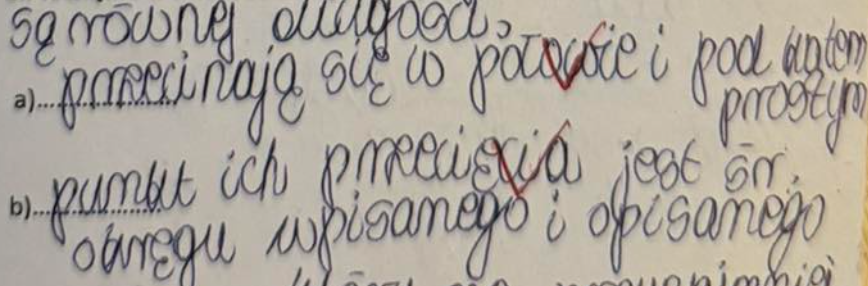 są równej długości,
a) przecinają się w połowie i pod kątem
prostym
b) punkt ich przecięcia jest śr.
okręgu wpisanego i opisanego